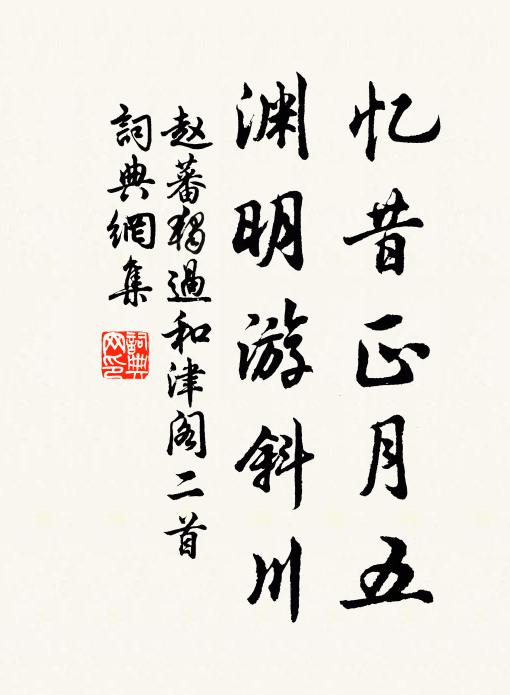 忆昔正月五
渊明游斜川
赵蕃独过和津阁二首
詞典網集
詞典網印